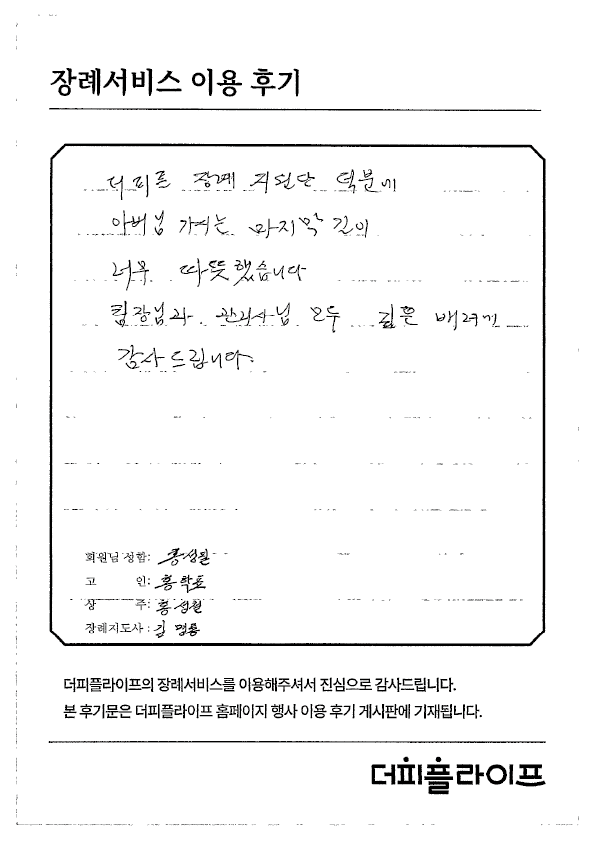 장례서비스 이용 후기
더피플 장례 지원단 덕분에
아버님 가시는 마지막 길이
너무 따뜻했습니다
팀장님과 관리사님 모두 깊은 배려에
감사드립니다.
회원님 성함: 홍성철
고 인: 홍학표
상 주: 홍성철
장례지도사 : 김명룡
더피플라이프의 장례서비스를 이용해주셔서 진심으로 감사드립니다.
본 후기문은 더피플라이프 홈페이지 행사 이용 후기 게시판에 기재됩니다.
더피플라이프